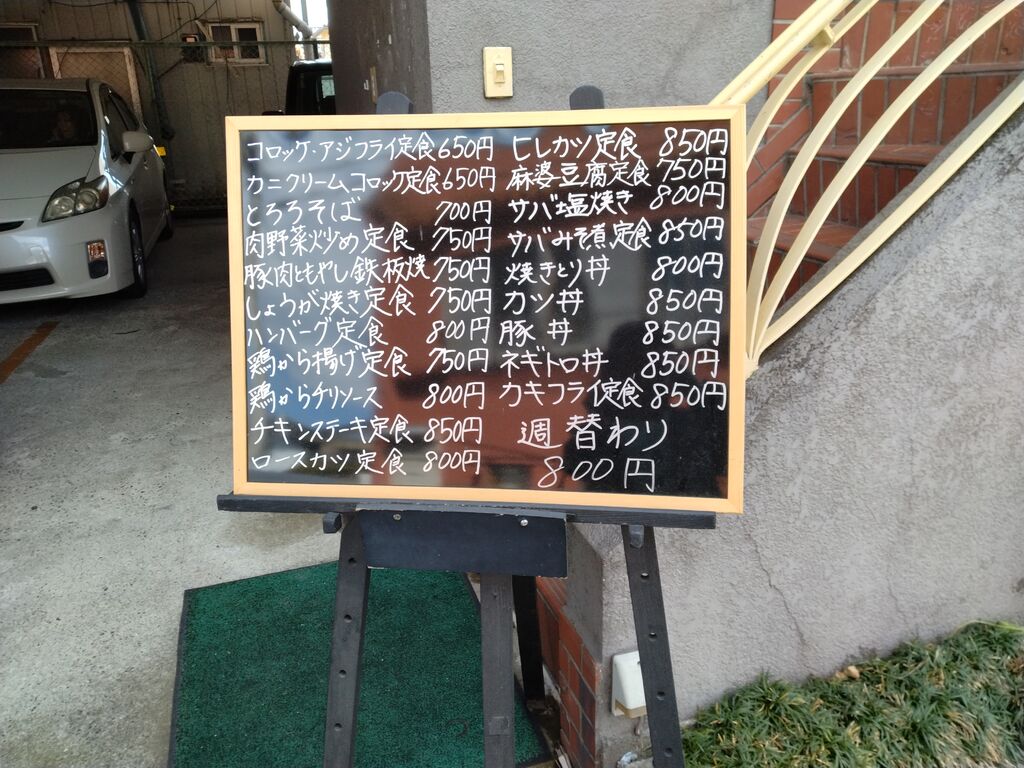 コロッケ・アジフライ定食 650円
カニクリームコロッケ定食 650円
とろろそば 700円
肉野菜炒め定食 750円
豚肉ともやし鉄板焼 750円
しょうが焼き定食 750円
ハンバーグ定食 800円
鶏から揚げ定食 750円
鶏からチリソース 800円
チキンステーキ定食 850円
ロースカツ定食 800円
ヒレカツ定食 850円
麻婆豆腐定食 750円
サバ塩焼き 800円
サバみそ煮定食 850円
焼きとり丼 800円
カツ丼 850円
豚丼 850円
ネギトロ丼 850円
カキフライ定食 850円
週替わり
800円